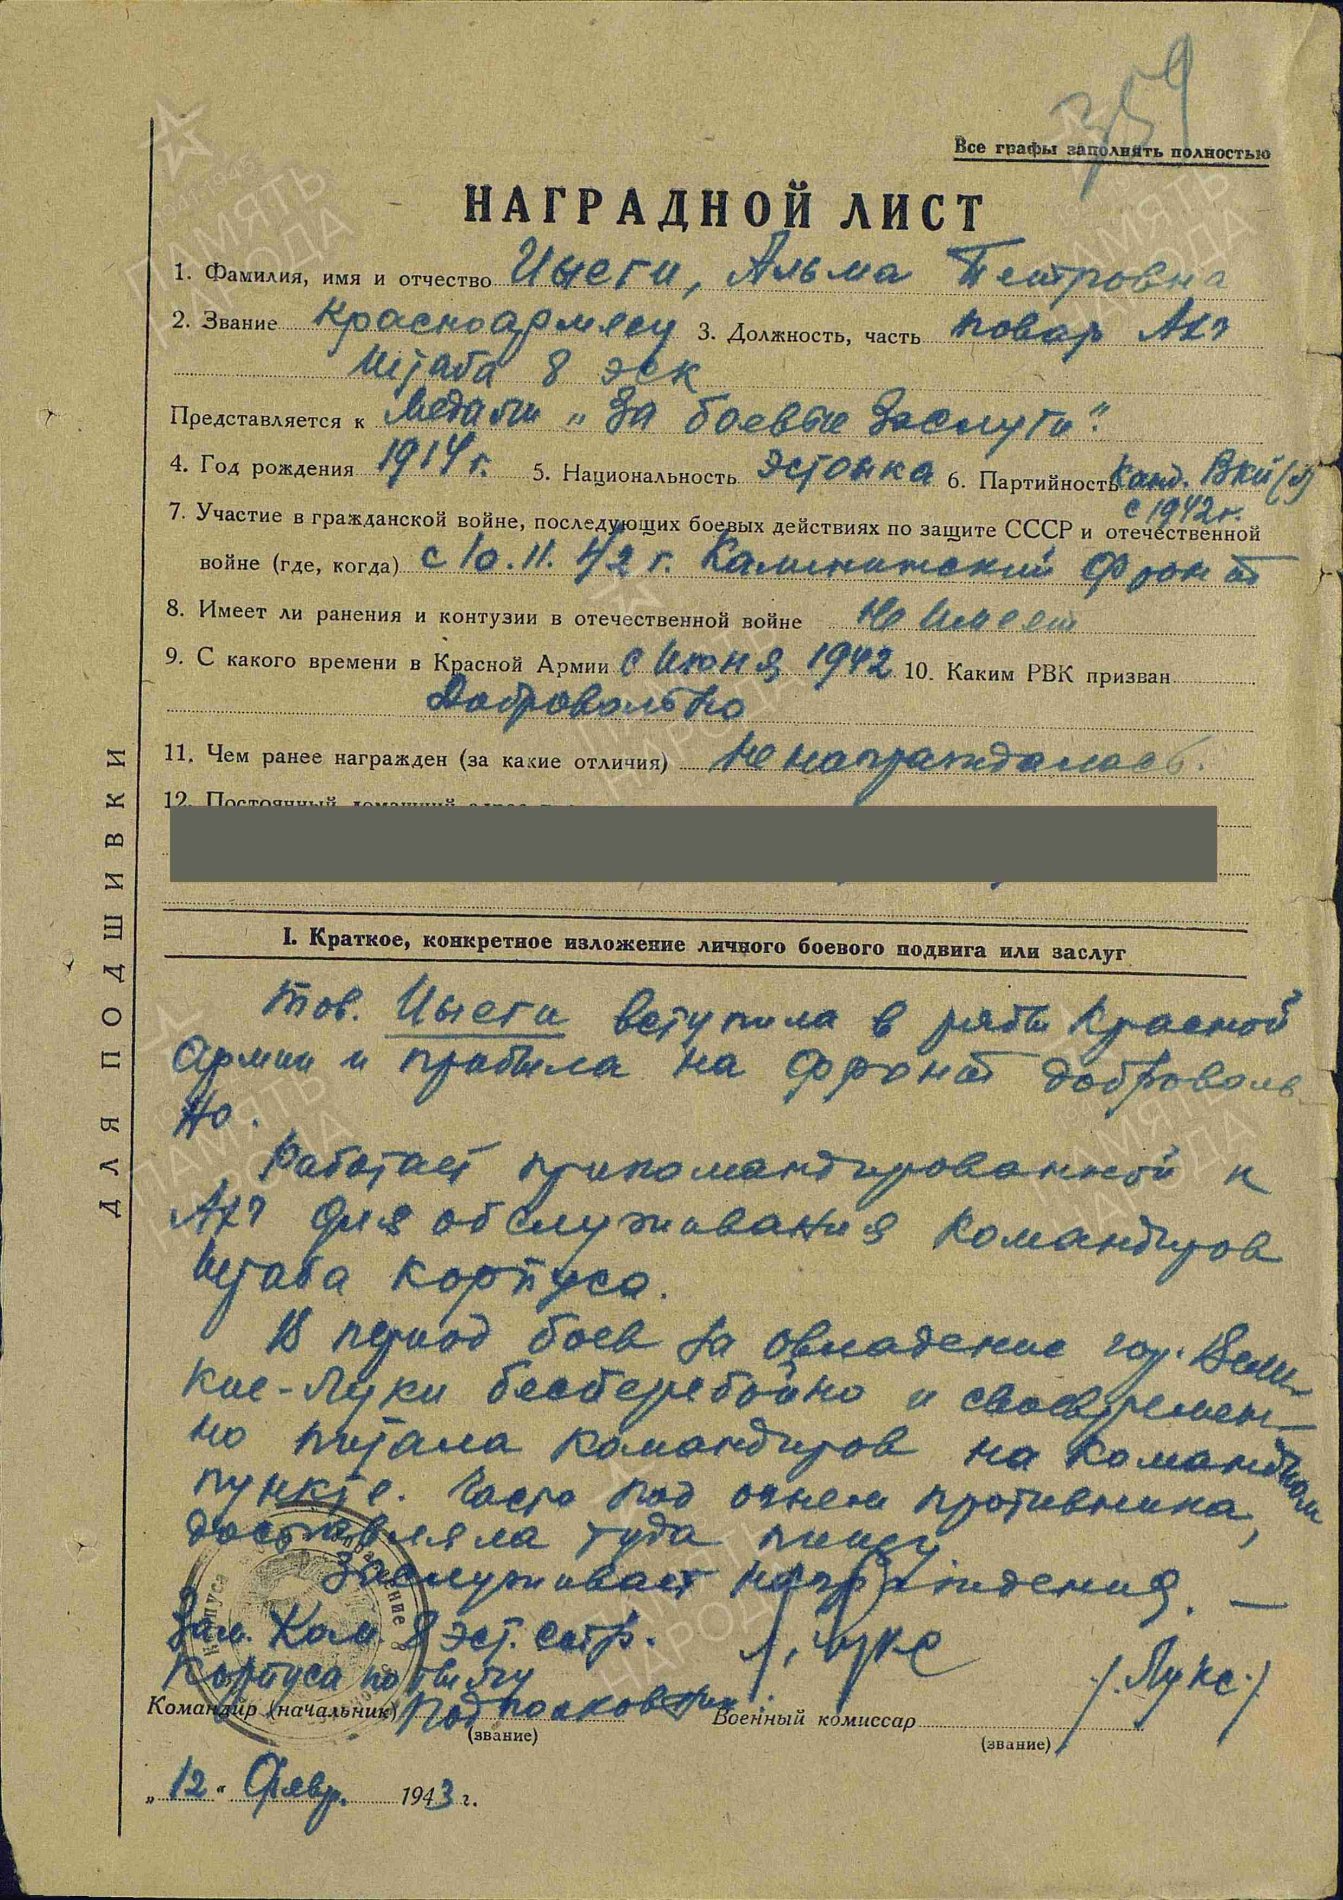 359
Все графы заполнять полностью
НАГРАДНОЙ ЛИСТ
1. Фамилия, имя и отчество Иыеги, Альма Петровна
2. Звание Красноармеец 3. Должность, часть повар АХЧ
Штаба 8 эск
Представляется к Медали „За боевые Заслуги".
4. Год рождения 1914 г. 5. Национальность эстонка 6. Партийность Канд. ВКП(б)
с 1942 г.
7. Участие в гражданской войне, последующих боевых действиях по защите СССР и отечественной
войне (где, когда) с 10.11.42 г. Калининский фронт
8. Имеет ли ранения и контузии в отечественной войне Не имеет
9. С какого времени в Красной Армии с Июня 1942 10. Каким РВК призван
Добровольно
11. Чем ранее награжден (за какие отличия) Не награждалась.
12. Постоянный домашний адрес
ДЛЯ ПОДШИВКИ
I. Краткое, конкретное изложение личного боевого подвига или заслуг
Тов. Иыеги вступила в ряды Красной
армии и прибыла на фронт доброволь
но.
Работает прикомандированной к
АХЧ для обслуживания командиров
Штаба корпуса.
В период боев за овладение гор. Вели-
кие-Луки бесперебойно и своевремен-
но питала командиров на командном
пункте. Часто под огнем противника,
доставляла туда пищу
Заслуживает награждения. —
Зам. Ком. 8 эст. стр.
Корпуса по тылу
Командир (начальник) Подполковник Военный комиссар /Лукс/
(звание) (звание)
„12" Февр. 1943 г.
ПАМЯТЬ
НАРОДА